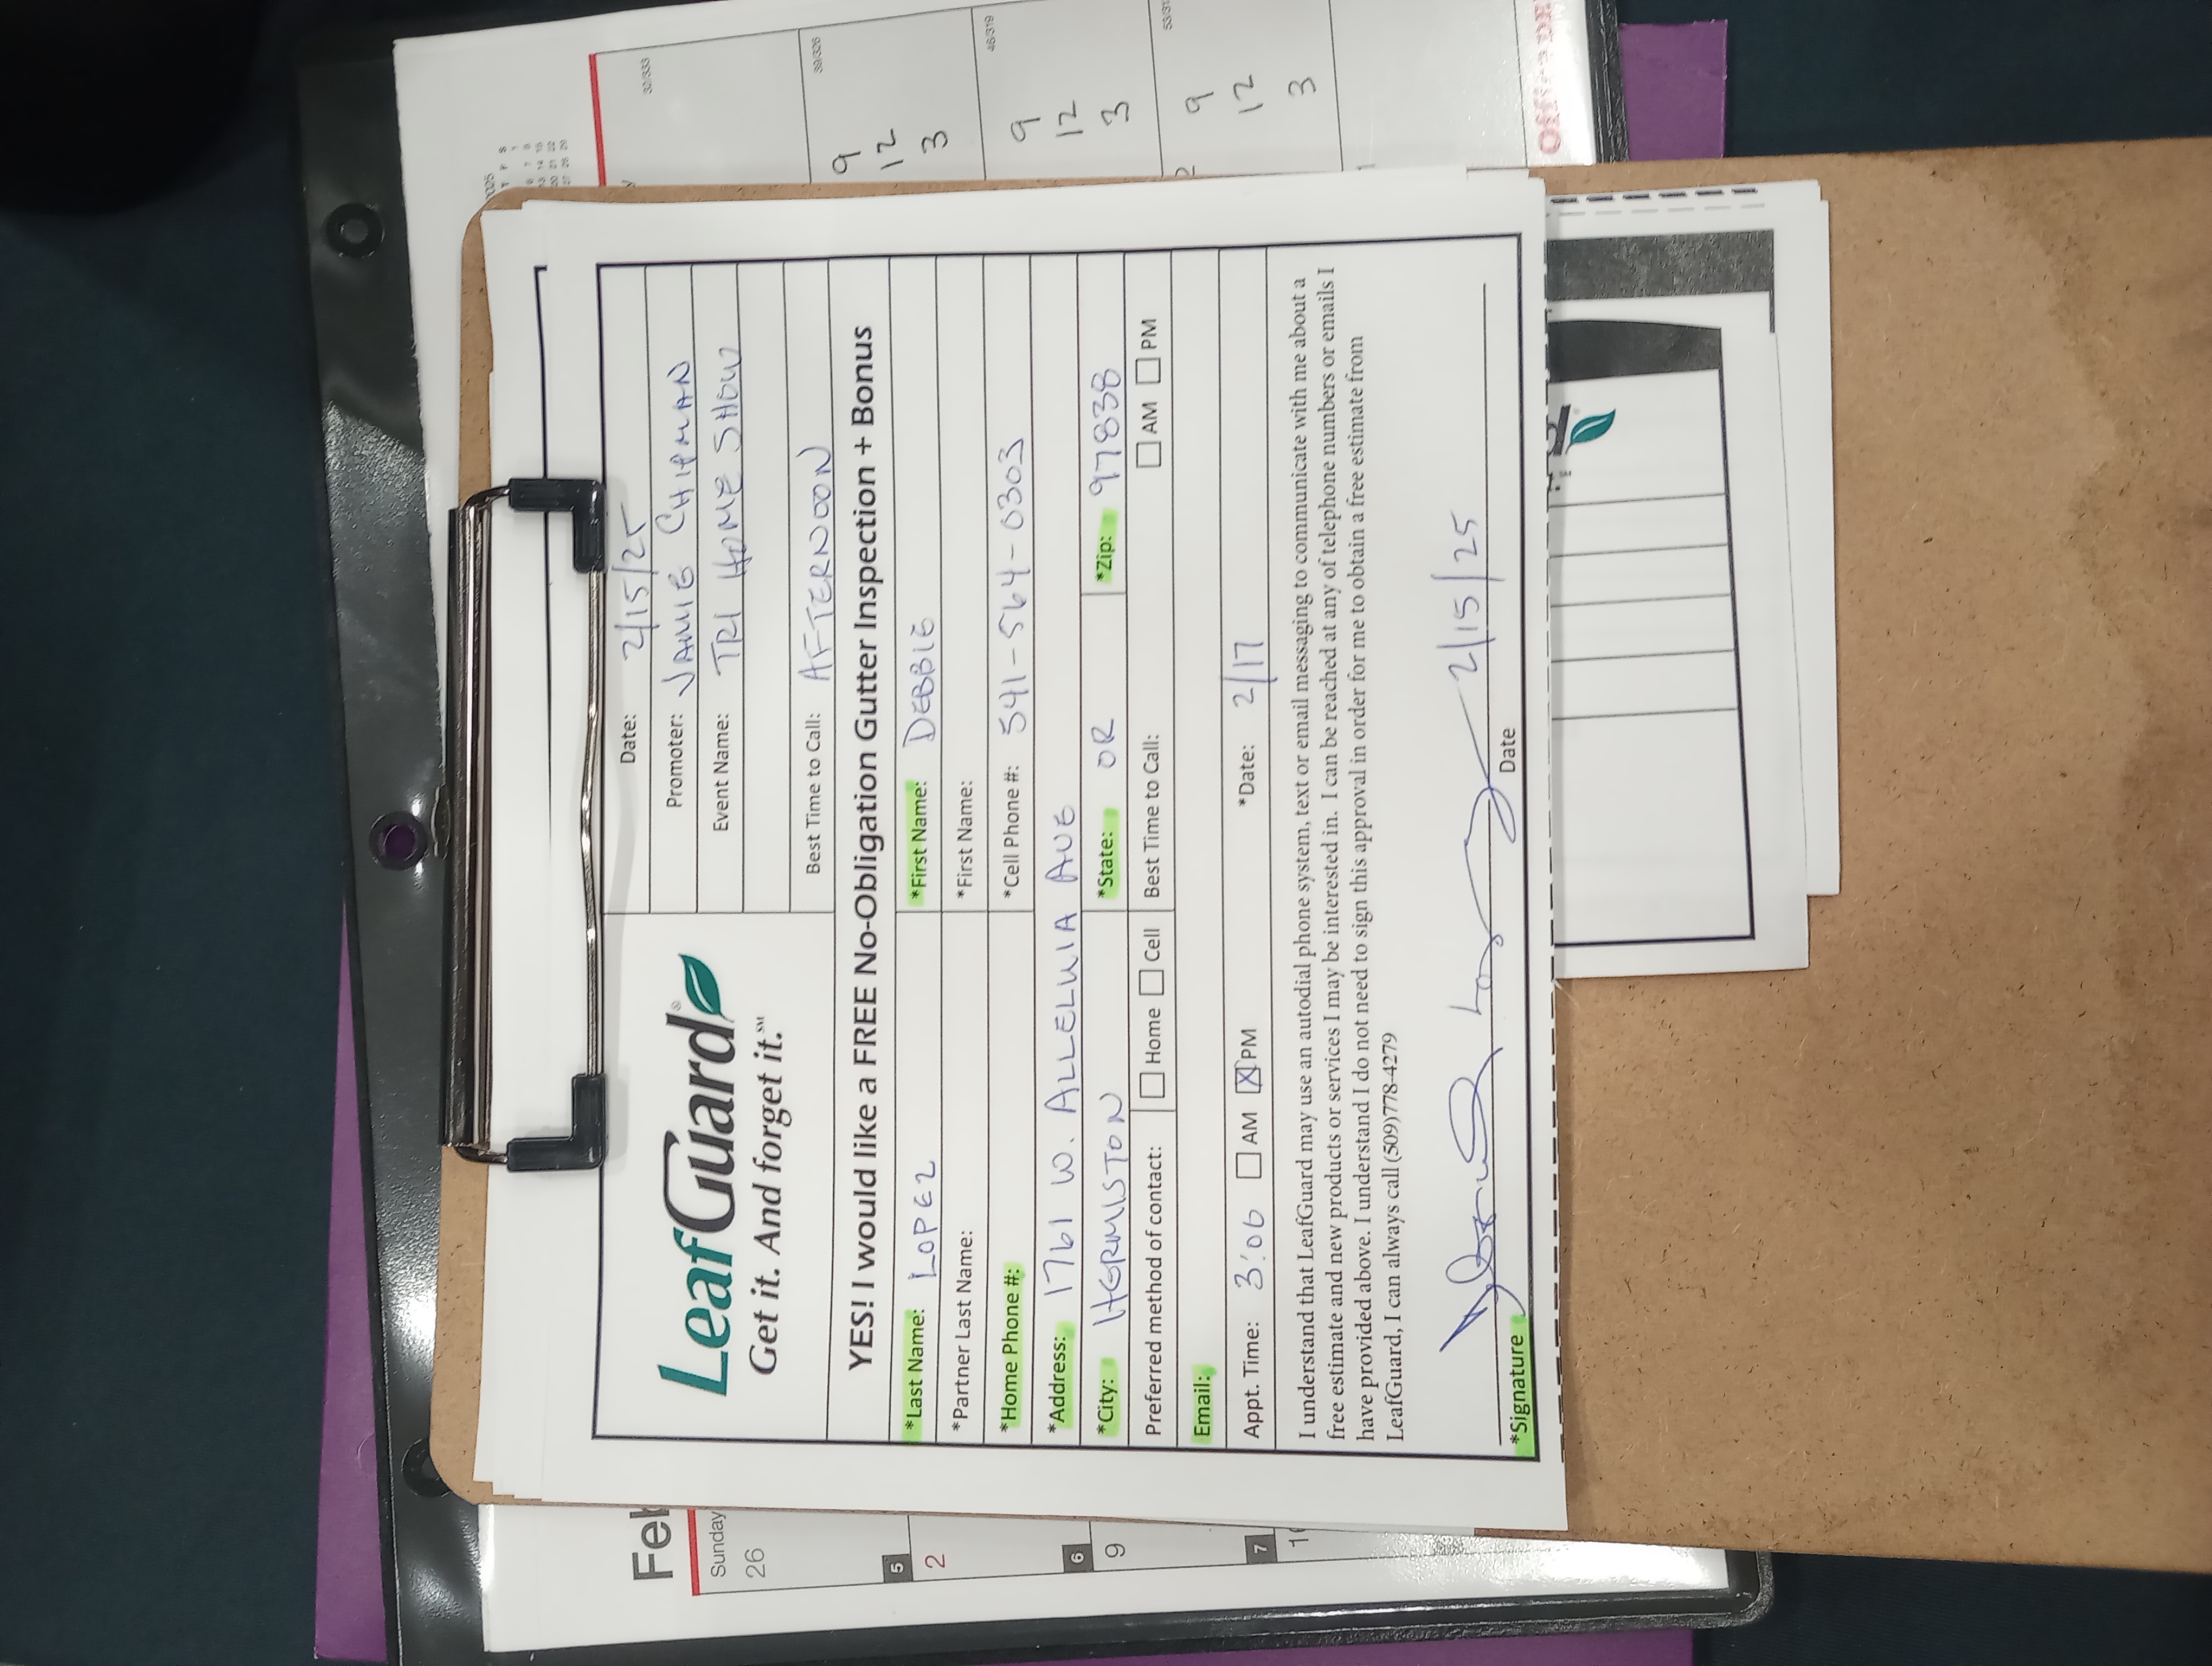 2025
T F S
1
6 7 8
13 14 15
20 21 22
27 28 29
Feb
Sunday
26
5
2
6
9
7
32/333
39/326
9
12
3
46/319
9
12
3
9
12
3
LeafGuard®
Get it. And forget it.℠
Date: 2/15/25
Promoter: JAMIE CHIPMAN
Event Name: TRI HOME SHOW
Best Time to Call: AFTERNOON
YES! I would like a FREE No-Obligation Gutter Inspection + Bonus
*Last Name: LOPEZ *First Name: DEBBIE
*Partner Last Name: *First Name:
*Home Phone #: *Cell Phone #: 541-564-0303
*Address: 1761 W. ALLELUIA AVE
*City: HERMISTON *State: OR *Zip: 97838
Preferred method of contact: Home Cell Best Time to Call: AM PM
Email:
Appt. Time: 3:00 AM X PM *Date: 2/17
I understand that LeafGuard may use an autodial phone system, text or email messaging to communicate with me about a
free estimate and new products or services I may be interested in. I can be reached at any of telephone numbers or emails I
have provided above. I understand I do not need to sign this approval in order for me to obtain a free estimate from
LeafGuard, I can always call (509)778-4279
2/15/25
*Signature Date